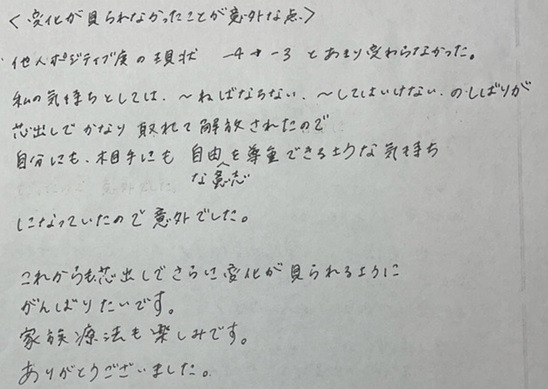 <変化が見られなかったことが意外な点>
他人ポジティブ度の現状 -4→-3 とあまり変わらなかった。
私の気持ちとしては、~ねばならない、~してはいけない、のしばりが
芯出しでかなり取れて解放されたので
自分にも、相手にも 自由な意志を尊重できるような気持ち
になっていたので意外でした。
これからも芯出しでさらに変化が見られるように
がんばりたいです。
家族療法も楽しみです。
ありがとうございました。